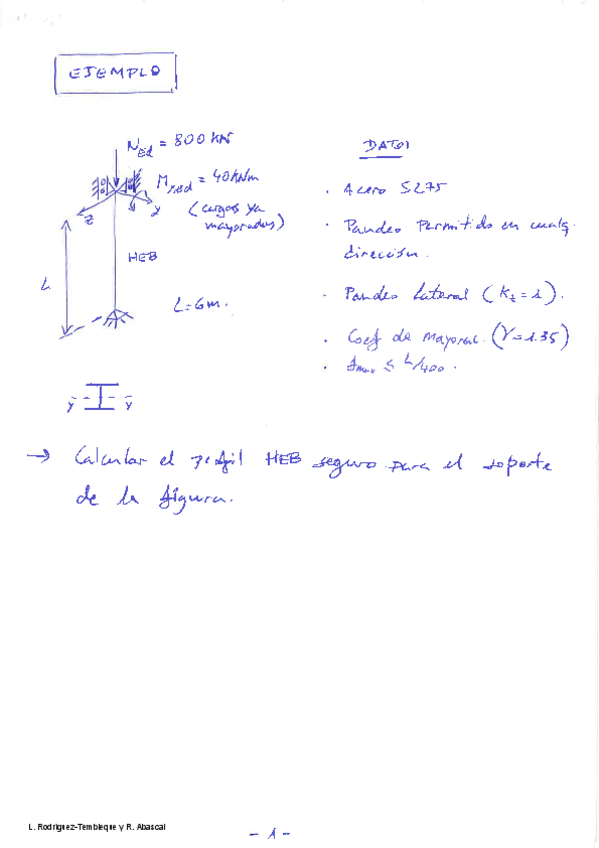 EJEMPLO
NEd = 800 kN
My,Ed = 40 kNm
(cargas ya
mayoradas)
z
y
HEB
L
L = 6 m.
y y
DATOS
· Acero S275
· Pandeo Permitido en cualq.
dirección.
- Pandeo Lateral (Kt = 1).
· Coef de Mayorac. (γ = 1.35)
· fmax ≤ L/400.
→ Calcular el perfil HEB seguro para el soporte
de la figura.
L. Rodríguez-Tembleque y R. Abascal
- 1 -